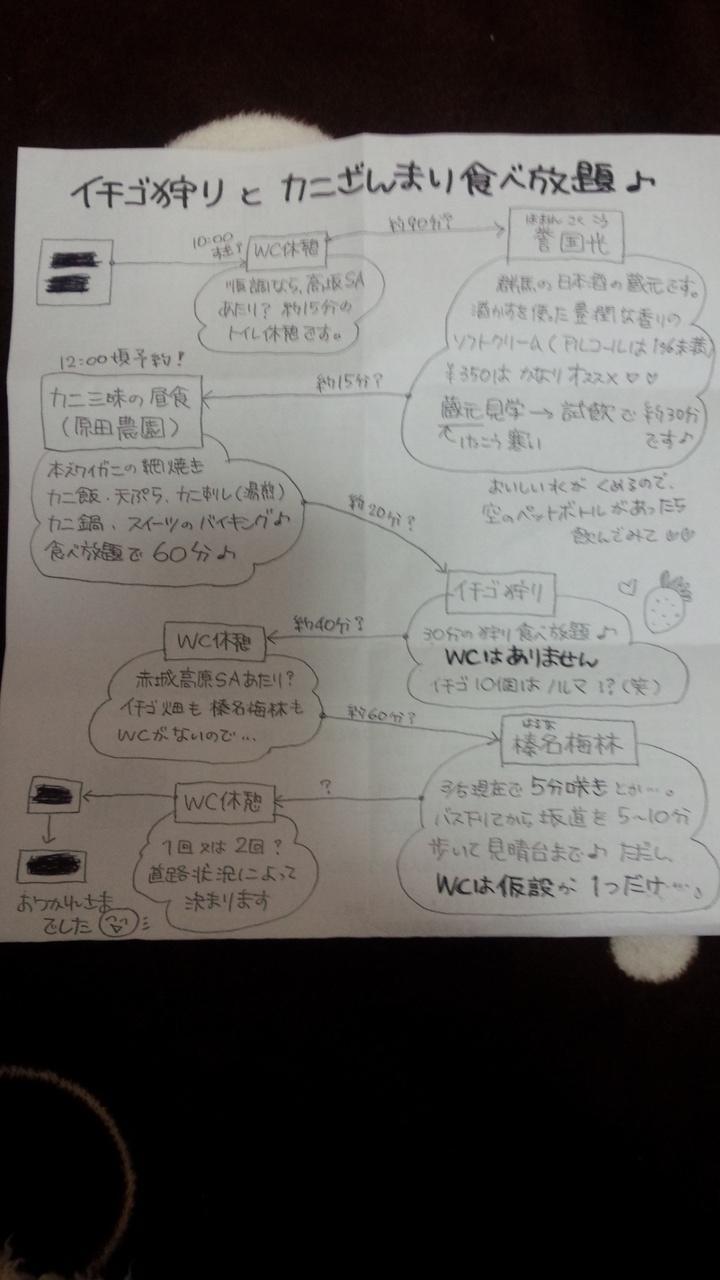 イチゴ狩りと カニざんまい食べ放題♪
10:00
WC休憩
約90分?
ほまれ こっ こう
誉国光
順調なら、高坂SA
あたり? 約15分の
トイレ休憩です。
群馬の日本酒の蔵元です。
酒かすを使った豊潤な香りの
ソフトクリーム(アルコールは1%未満)
¥350はかなりオススメ♡♡
蔵元見学→試飲で約30分
です♪
↑けっこう寒い
おいしい水がくめるので、
空のペットボトルがあったら
飲んでみて♡♡
約15分?
12:00頃予約!
カニ三昧の昼食
(原田農園)
本ズワイガニの網焼き
カニ飯・天ぷら、カニ刺し(湯煎)
カニ鍋、スイーツのバイキング♪
食べ放題で60分♪
約20分?
イチゴ狩り
♡
30分の狩り食べ放題♪
WCはありません
イチゴ10個はノルマ!?(笑)
約40分?
WC休憩
赤城高原SAあたり?
イチゴ畑も榛名梅林も
WCがないので…
約60分?
はるな
榛名梅林
3/5現在で5分咲きとか…。
バス下りてから坂道を5~10分
歩いて見晴台まで♪ ただし、
WCは仮設が1つだけ…♪
?
WC休憩
1回又は2回?
道路状況によって
決まります
おつかれさま
でした